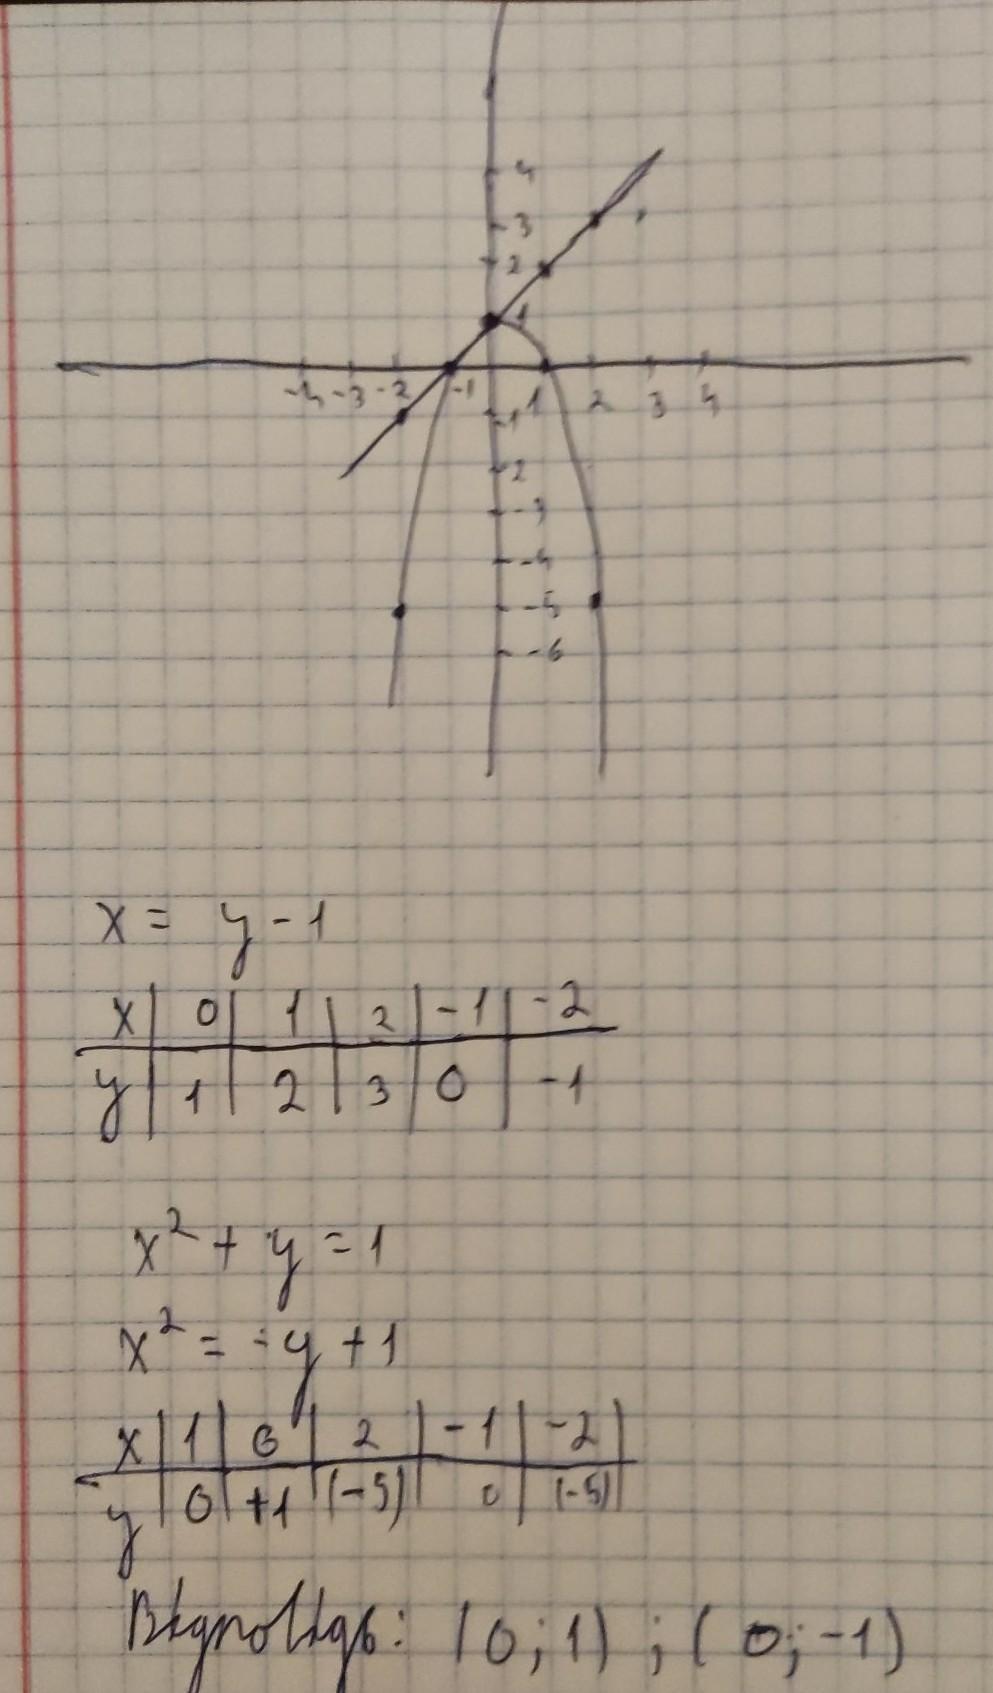 4
3
2
1
-4 -3 -2 -1 1 2 3 4
-1
2
-3
-4
-5
-6
x = y - 1
x | 0 | 1 | 2 | -1 | -2
y | 1 | 2 | 3 | 0 | -1
x² + y = 1
x² = -y + 1
x | 1 | 0 | 2 | -1 | -2 |
y | 0 | +1 | (-5) | 0 | (-5) |
Відповідь: (0; 1) ; (0; -1)